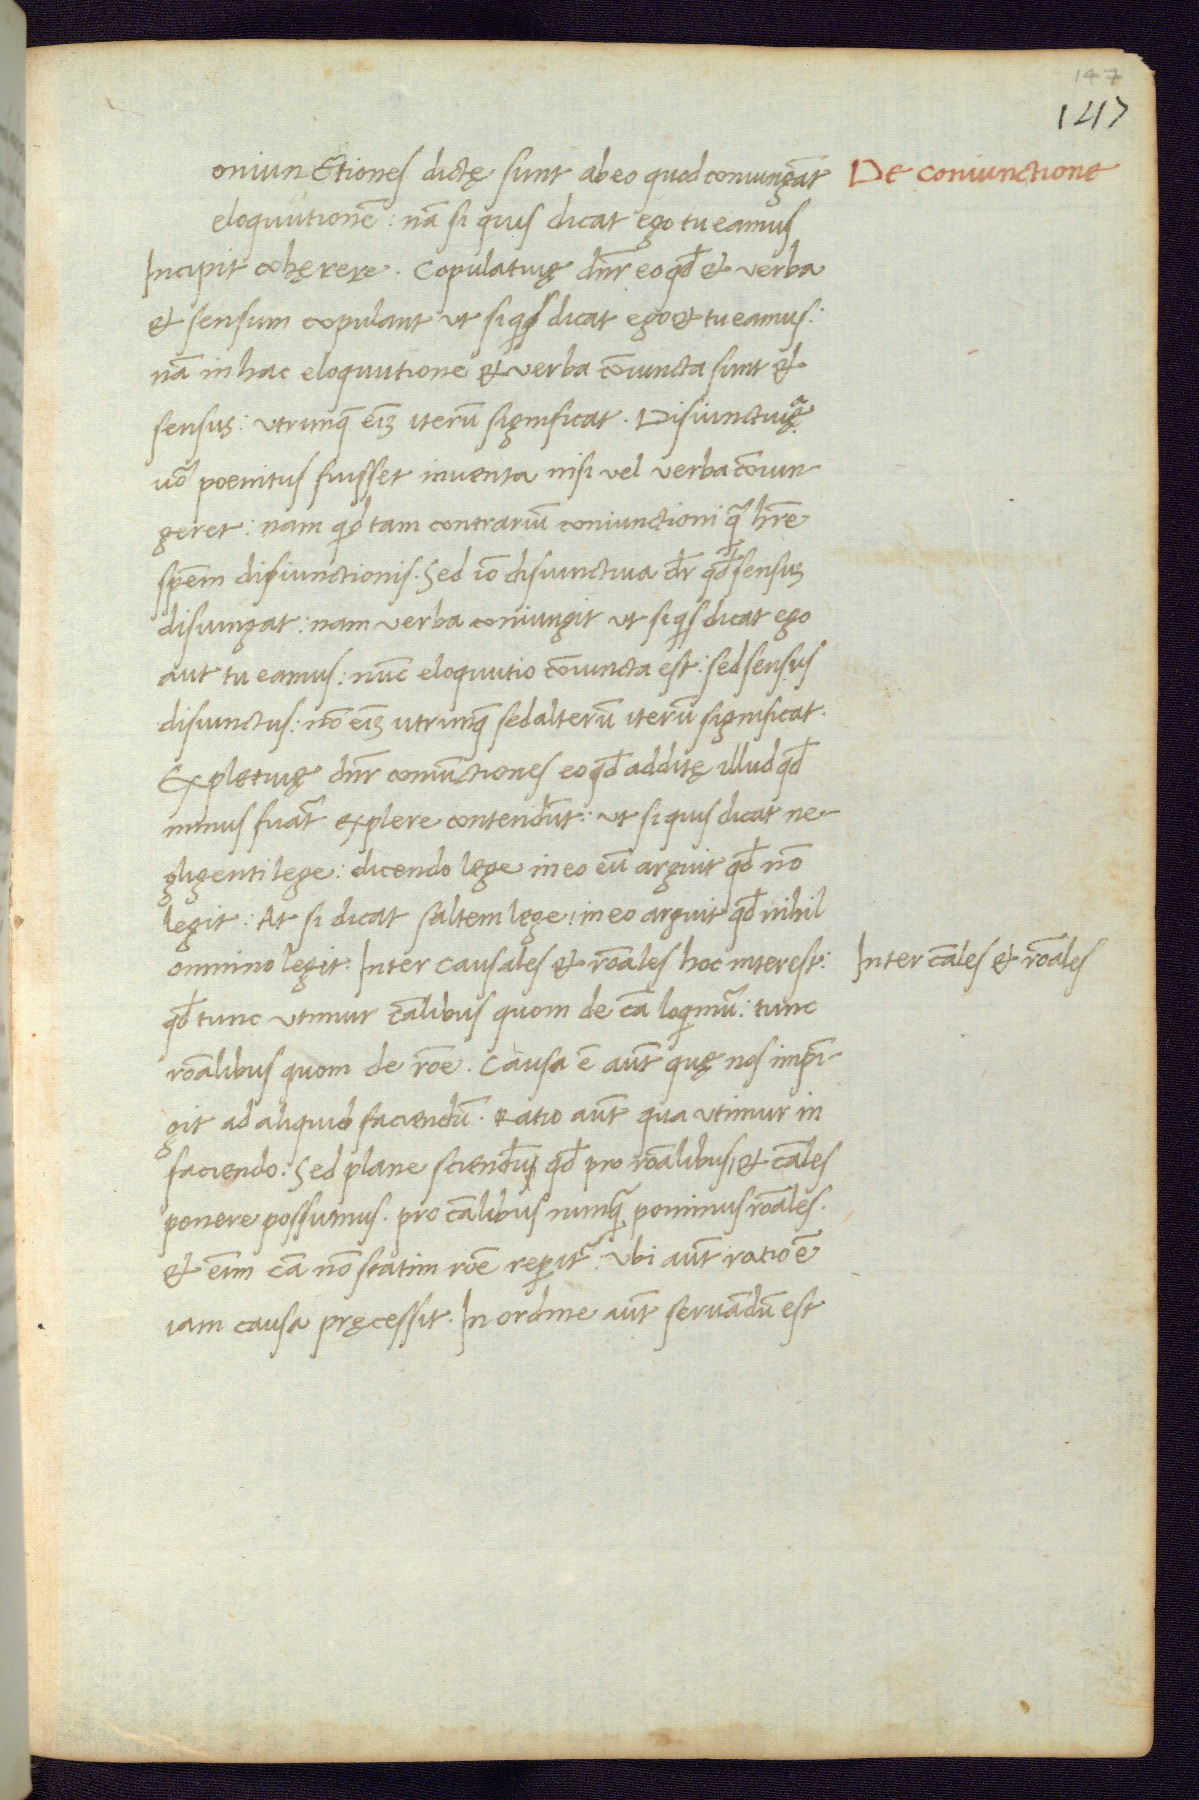 147
147
De coniunctione
oniunctiones dictę sunt ab eo quod coniungāt
eloquutionē: nā si quis dicat ego tu eamus
Incipit cohęrere. Copulatiuę dnr̄ eo qđ et verba
et sensum copulant vt si qs dicat ego et tu eamus:
nā in hac eloquutione et verba cōiuncta sunt et
sensus: vtrunq eīȝ iterū significat. Disiunctiuę
uō poenitus fuisset inventa nisi vel verba cōiun-
geret: nam qd tam contrariū coniunctioni q̄ hr̄e
spēm disiunctionis. Sed iō disiunctiua dr̄ qđ sensus
disiungat: nam verba coniungit vt si qs dicat ego
aut tu eamus: nūc eloquutio cōiuncta est: sed sensus
disiunctus: nō eīȝ utrunq sed alterū iterū significat.
Expletiuę dnr̄ coniūctiones eo qđ additę illud qđ
minus fuāt explere contendūt: vt si quis dicat ne-
gligenti lege: dicendo lege in eo eū arguit qđ nō
legit: At si dicat saltem lege: in eo arguit qđ nihil
omnino legit. Inter causales et rōales hoc interest:
Inter cāles et rōales
qđ tunc vtimur cālibus quom de cā loqimur̄: tunc
rōalibus quom de rōe. Causa ē aūt quę nos impī-
git ad aliquid faciendū. Ratio aūt qua vtimur in
faciendo: Sed plane sciendū qđ pro rōalibus et cāles
ponere possumus. pro cālibus nunq̄ ponimus rōales.
et eīm cā nō statim rōē reperit̄: vbi aūt ratio ē
iam causa pręcessit. In ordine aūt servādū est